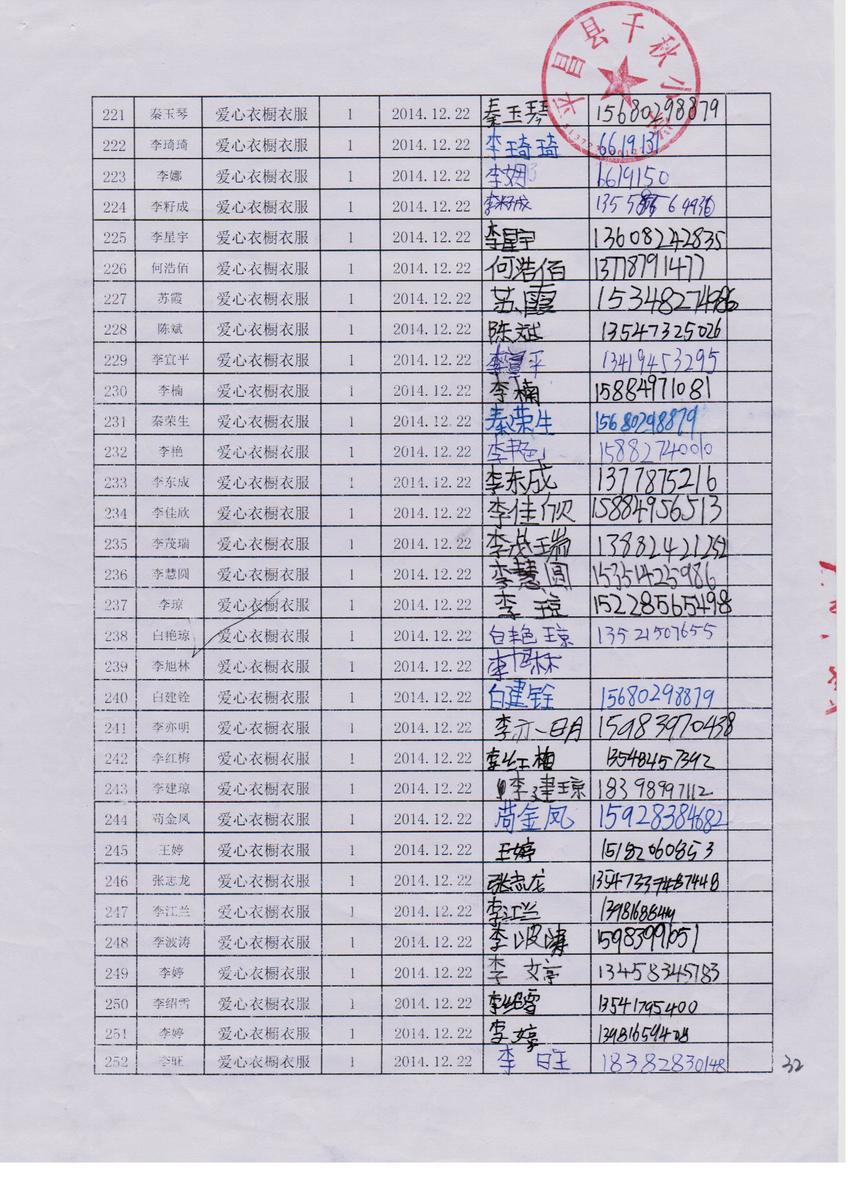 平昌县千秋小
221 秦玉琴 爱心衣橱衣服 1 2014.12.22 秦玉琴 15680298879
222 李琦琦 爱心衣橱衣服 1 2014.12.22 李琦琦 6619137
223 李娜 爱心衣橱衣服 1 2014.12.22 李娜 6619150
224 李籽成 爱心衣橱衣服 1 2014.12.22 李籽成
225 李星宇 爱心衣橱衣服 1 2014.12.22 李星宇 13608242835
226 何浩佰 爱心衣橱衣服 1 2014.12.22 何浩佰 13778791477
227 苏霞 爱心衣橱衣服 1 2014.12.22 苏霞 15348274986
228 陈斌 爱心衣橱衣服 1 2014.12.22 陈斌 13547325026
229 李宜平 爱心衣橱衣服 1 2014.12.22 13419453295
230 李楠 爱心衣橱衣服 1 2014.12.22 李楠 15884971081
231 秦荣生 爱心衣橱衣服 1 2014.12.22 秦荣生 15680298879
232 李艳 爱心衣橱衣服 1 2014.12.22 李艳 15882740010
233 李东成 爱心衣橱衣服 1 2014.12.22 李东成 1377875216
234 李佳欣 爱心衣橱衣服 1 2014.12.22 李佳欣 15884956513
235 李茂瑞 爱心衣橱衣服 1 2014.12.22 李茂瑞 13882421252
236 李慧圆 爱心衣橱衣服 1 2014.12.22 李慧圆 15351425986
237 李琼 爱心衣橱衣服 1 2014.12.22 李琼 15228565498
238 白艳琼 爱心衣橱衣服 1 2014.12.22 白艳琼 13521507655
239 李旭林 爱心衣橱衣服 1 2014.12.22 李旭林
240 白建铨 爱心衣橱衣服 1 2014.12.22 白建铨 15680298879
241 李亦明 爱心衣橱衣服 1 2014.12.22 李亦明 15983970438
242 李红梅 爱心衣橱衣服 1 2014.12.22 李红梅 13548457392
243 李建琼 爱心衣橱衣服 1 2014.12.22 李建琼 18398997112
244 苟金凤 爱心衣橱衣服 1 2014.12.22 苟金凤 15928384682
245 王婷 爱心衣橱衣服 1 2014.12.22 王婷 15182060853
246 张志龙 爱心衣橱衣服 1 2014.12.22 张志龙
247 李江兰 爱心衣橱衣服 1 2014.12.22 李江兰
248 李波涛 爱心衣橱衣服 1 2014.12.22 李波涛 15983991051
249 李婷 爱心衣橱衣服 1 2014.12.22 李婷 13458345183
250 李绍雪 爱心衣橱衣服 1 2014.12.22 李绍雪 13541795400
251 李婷 爱心衣橱衣服 1 2014.12.22 李婷
252 李旺 爱心衣橱衣服 1 2014.12.22 李旺 18382830148
32